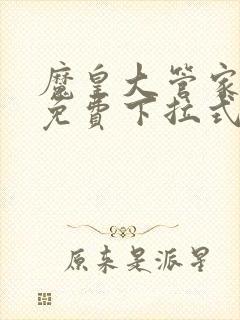 魔皇大管家
免費下拉式
原来是派星